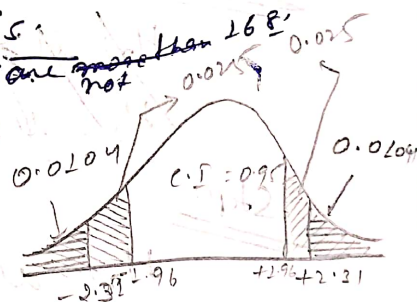 S.
are more than 168.
not
0.025 0.025
0.0104 0.0104
C.I = 0.95
-2.31 -1.96 +1.96 +2.31